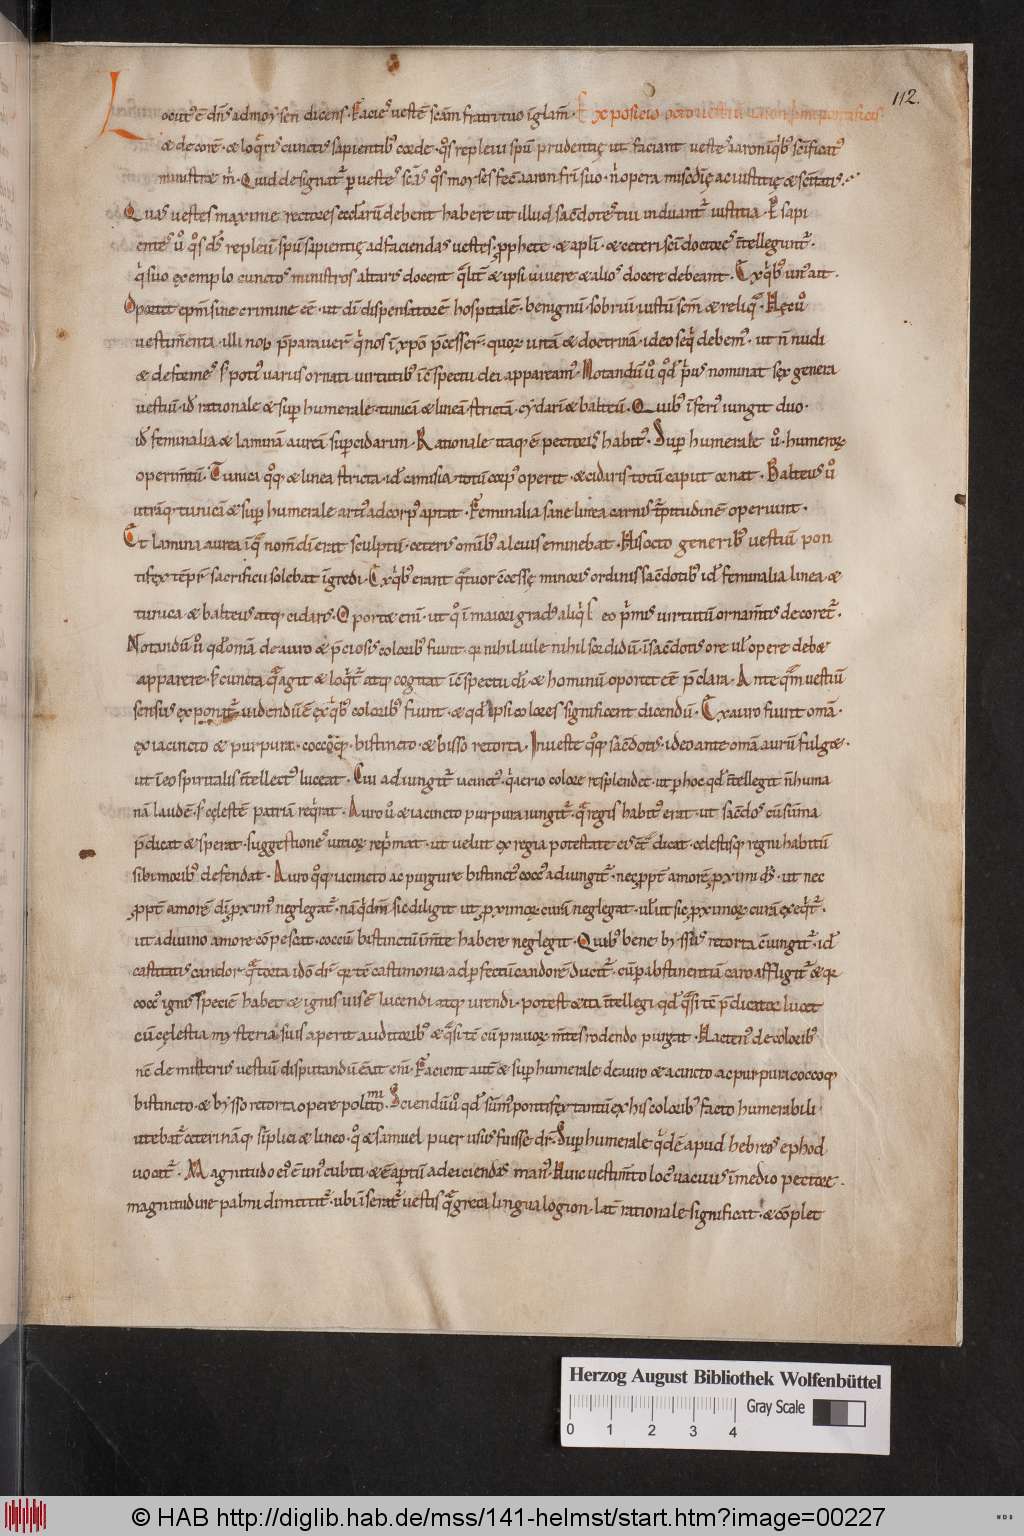 112.
Locut᷒ ē dn̄s ad moysen dicens. Facies vestē scām fratri tuo ī gl̄am. Exposicio octo vestiū
& decorē. & loq̄ris cunctis sapientib᷒ corde. q̊s replevi sp̄u prudentię ut faciant vestes aaron ī q̄b᷒ sc̄ificat᷒
ministr& m̄. Quid designat̄ p̱ vestes sc̄as q̊s moyses fec̄ aaron fr̄i suo. n̄ opera mis̄c̄dię ac iustitię & sc̄itatis.
Quas vestes maxime rectores eccl̄arū debent habere ut illud sac̄dotes tui induant̄ iustitia. & sapi
entes v̊ q̊s dn̄s replevit sp̄u sapientię ad faciendas vestes. p̱phete. & apl̄i. & ceteri sc̄i doctores īntelligunt̄.
q̇ suo exemplo cunctos ministros altaris docent q̄lit̄ & ipsi vivere & alios docere debeant. Ex q̄b᷒ un᷒ ait.
Oportet ep̄m sine crimine eē. ut dī dispensatorē hospitalē. benignū. sobriū. iustū. sc̄m & reliq̄. Hęc v̊
vestim̄enta. illi nob̄ p̄paraver̄ q̇ nos ī xp̄o p̄cesser̄. quoꝝ vitā & doctrinā. ideo seq̇ debem᷒. ut n̄ nudi
& deformes s; poti᷒ variis ornati virtutib᷒ ī c̄spectu dei appaream᷒. Notandū v̊ qđ pri᷒ nominat sex genera
vestiū. id̄ rationale & sup̱ humerale. tunicā & lineā strictā. cydarī & balteū. Quib᷒ īferi᷒ iungit duo.
id̄ feminalia & laminā aureā sup̱ cidarim. Rationale itaq; ē pectoris habit᷒. Sup̱ humerale v̊. humeroꝝ
operim̄tū. Tunica q̊q; & linea stricta. id̄ camisia totū corp᷒ operit. & cidaris totū caput ornat. Balteus v̊
utrāq; tunicā & sup̱ humerale arti᷒ ad corp᷒ aptat. Feminalia sane linea carnis t̄pitudinē operiunt.
Et lamina aurea ī q̄ nom̄ dī erat sculptū. ceteris om̄ib᷒ alcius eminebat. His octo generib᷒ vestiū pon
tifex tēpr̄ sacrificii solebat ingredi. Ex q̄b᷒ erant q̄tuor c̄cessę minoris ordinis sac̄dotib᷒ id̄ feminalia linea. &
tunica. & balteus atq; cidaris. Oport& eni̅. ut q̊ ī maiori gradu aliq̇s; eo p̄mis virtutū ornam̄tis decoret̄.
Notandū v̊ qđ om̄a de auro & p̄ciosis colorib᷒ fiunt. q̄ nihil vile nihil sordidū. ī sac̄dotis ore vl̄ opere deb&
apparere. s; cuncta q̄ agit & loq̇t̄ atq; cogitat ī c̄spectu dī. & hominū oportet eē p̄clara. Ante q̄m vestiū
sensus exponit̄ videndū ē ex q̄b᷒ colorib᷒ fiunt. & qđ ipsi colores significent dicendū. Ex auro fiunt om̄a.
ex iacincto & purpura. coccoq;. bistincto. & bisso retorta. In veste q̊q; sac̄dotis. ideo ante om̄a aurū fulg&.
ut ī eo spiritalis īntellect᷒ luceat. Cui adiungit̄ iacinct᷒. q̇ aerio colore resplendet. ut p̱ hoc qđ īntellegit n̄ huma
nā laudē. s; celestē patriā req̄rat. Auro v̊ & iacincto purpura iungit̄. q̄ regis habit᷒ erat. ut sac̄dos cū sūma
p̄dicat & sperat. suggestiones vitioꝝ rep̄mat. ut velut ex regia potestate eis c̄tdicat. celestisq; regni habitū
sibi morib᷒ defendat. Auro q̊q; iacincto ac purpure bistinct᷒ cocc᷒ adiungit̄. nec p̱pt̄ amorē p̱ximi dī. ut nec
p̱pt̄ amorē dī p̱xim᷒ neglegat̄. nā q̇dam sic diligit ut p̱ximoꝝ curā neglegat. vl̄ ut sic p̱ximoꝝ curā exeq̇t̄.
ut a divino amore cōpescat. coccū bistinctū im̄te habere neglegit. Quib᷒ bene byssus retorta c̄iungit̄. id̄
castitatis candor. q̄ torta ideo dr̄ q̄ tc̄ castimonia ad p̱fectū candorē ducit̄. cū p̱ abstinentiā caro affligit̄ & q̄
cocc᷒ ignis speciē habet & ignis vis ē lucendi atq; urendi. potest & ita īntellegi qđ q̄si tc̄ p̄dicator lucet
cū celestia mysteria suis aperit auditorib᷒ & q̄si tc̄ cū pravoꝝ m̄tes rodendo purgat. Hacten᷒ de colorib᷒
nc̄ de misteriis vestiū disputandū ē. ait eni̅. Facient aut̄ & sup̱ humerale de auro & iacincto ac purpura coccoq;
bistincto. & bysso retorta opere polimito. Sciendū v̊ qđ sūm᷒ pontifex tantū ex his colorib᷒ facto humerali
utebat̄ ceteri nāq; simplici & lineo. q̊ & samuel puer usus fuisse dr̄. Sup̱ humerale q̇dē apud hebreos ephod
vocat̄. Magnitudo ei᷒ ē uni᷒ cubiti. & ē aptū ad eiciendas man᷒. Huic vestim̄to loc᷒ vacuus ī medio pectore.
magnitudine palmi dimittit̄. ubi īserat̄ vestis q̄ greca lingua logion. lat̄ rationale significat. & cōplet
Herzog August Bibliothek Wolfenbüttel
Gray Scale
0 1 2 3 4
© HAB http://diglib.hab.de/mss/141-helmst/start.htm?image=00227